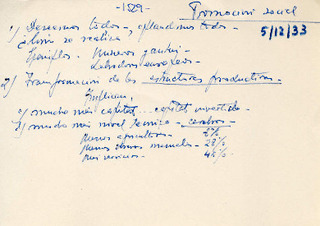 -129-
Promoción social
5/12/33
1) Deseamos todos, aplaudimos todos -
se realiza,
Ejemplos. Mineros
Labradores
2) Transformación de las estructuras productivas -
Influencia,
a) mucho más capital... capital invertido -
b) mucho más nivel técnico - cerebros -
menos agricultores - 2%
menos obreros manuales - 28%
más servicios - 4